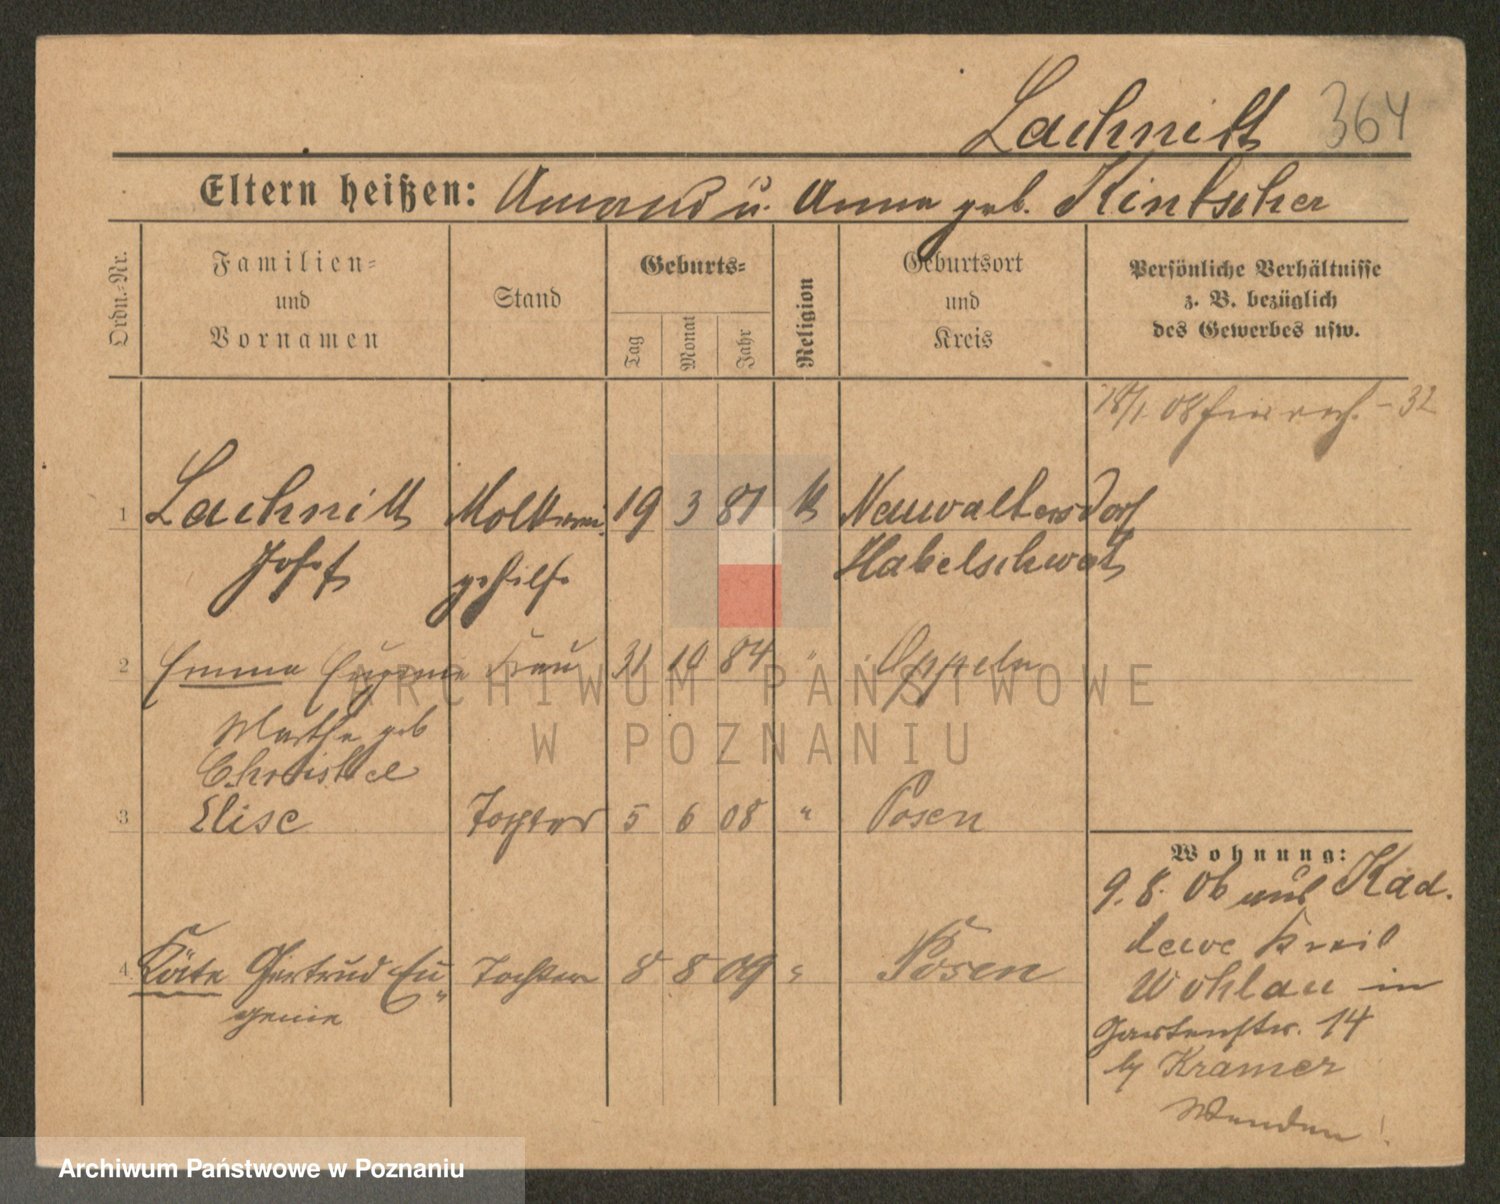 Lachnitt 364
Eltern heißen: Amand u. Anna geb. Kintscher
Ordn.-Nr.
Familien-
und
Vornamen
Stand
Geburts-
Tag Monat Jahr
Religion
Geburtsort
und
Kreis
Persönliche Verhältnisse
z. B. bezüglich
des Gewerbes usw.
18/1 08 - 32
1 Lachnitt Molkerei 19 3 81 k Neuwaltersdorf
Josef gehilfe Habelschwat
2 Emma Eugenie Frau 31 10 84 " Oppeln
Martha geb
Christel
3 Elise Tochter 5 6 08 " Posen
4 Käte Gertrud Eu- Tochter 8 8 09 " Posen
genie
Wohnung:
9. 8. 06 aus Kad.
lewe Kreis
Wohlau in
Gartenstr. 14
b/ Kramer
Wenden!
ARCHIWUM PAŃSTWOWE
W POZNANIU
Archiwum Państwowe w Poznaniu